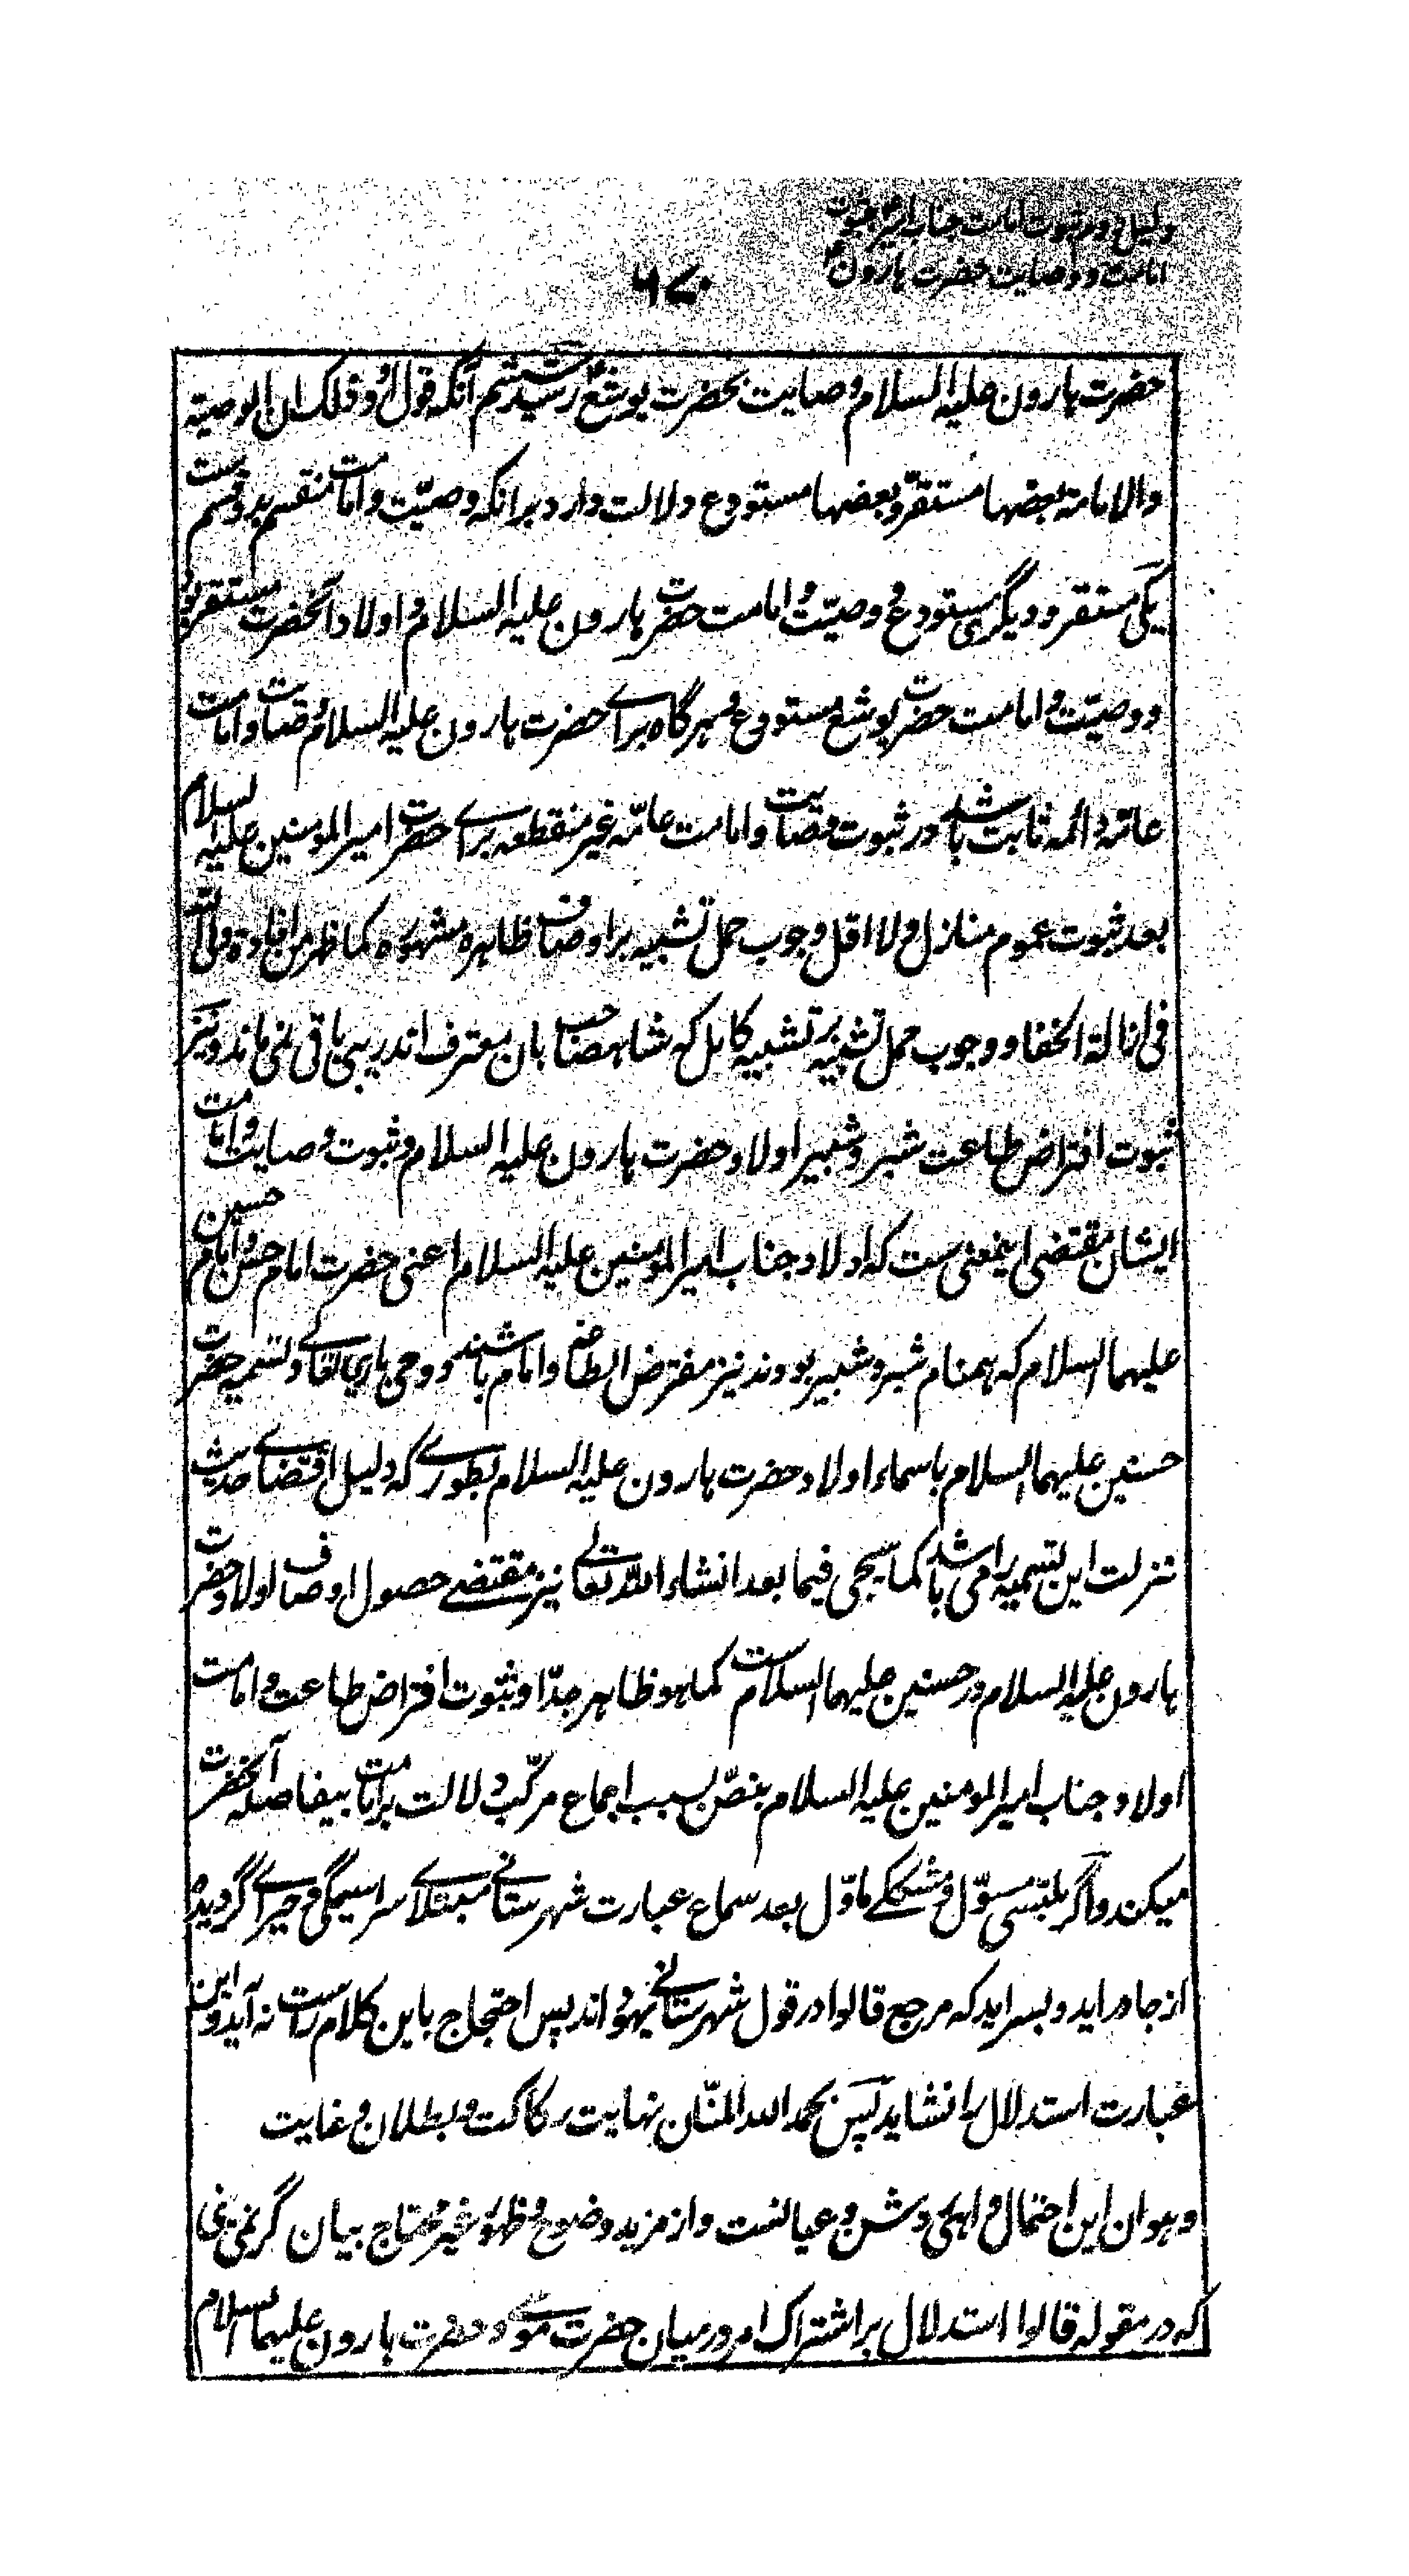 دلیل ۶ در ثبوت امامت جناب امیر بثبوت
امامت و وصایت حضرت هارون ۴
۶۷۰
حضرت هارون علیه السلام وصایت بحضرت یوشع ۴ رسید ششم آنکه قول او و ذلک ان الوصیة
والامامة بعضها مستقر و بعضها مستودع دلالت دارد برانکه وصیّت و امامت منقسم بدو قسم ست
یکی مستقر و دیگری مستودع و وصیّت و امامت حضرت هارون علیه السلام و اولاد آنحضرت مستقر بود
و وصیّت و امامت حضرت یوشع مستودع و هرگاه برای حضرت هارون علیه السلام وصایت و امامت
عامّه دائمه ثابت باشد در ثبوت وصایت و امامت عامّه غیر منقطعه برای حضرت امیرالمومنین علیه السلام
بعد ثبوت عموم منازل و لا اقل وجوب حمل تشبیه بر اوصاف ظاهره مشهوره کما ظهر من افادة والده
فی ازالة الخفا و وجوب حمل تشبیه بر تشبیه کامل که شاهصاحب بان معترف اند ریبی باقی نمی ماند و نیز
ثبوت افتراض طاعت شبر و شبیر اولاد حضرت هارون علیه السلام و ثبوت وصایت و امامت
ایشان مقتضی اینمعنی ست که اولاد جناب امیرالمومنین علیه السلام اعنی حضرت امام حسن و امام حسین
علیهما السلام که همنام شبر و شبیر بودند نیز مفترض الطاعة و امام باشند و وحی باری تعالی و تسمیه حضرت
حسنین علیهما السلام باسماء اولاد حضرت هارون علیه السلام بطوری که دلیل اقتضای حدیث
منزلت این تسمیه را می باشد کما سیجی فیما بعد انشاء الله تعالی نیز مقتضی حصول اوصاف اولاد حضرت
هارون علیه السلام در حسنین علیهما السلام ست کما هو ظاهر جدّا و ثبوت افتراض طاعت و امامت
اولاد جناب امیرالمومنین علیه السلام بنصّ بسبب اجماع مرکّب دلالت بر امامت بیفاصله آنحضرت
میکند و اگر ملبّسی مسوّل و مشککی ماوّل بعد سماع عبارت شهرستانی مبتلای سراسیمگی و حیرانی گردیده
از جا در اید و بسراید که مرجع قالوا در قول شهرستانی یهود اند پس احتجاج باین کلام راست نه آید و این
عبارت استدلال را نشاید پس بحمد الله المنّان نهایت رکاکت و بطلان و غایت
و هوان این احتمال واهی روشن و عیانست و از مزید وضوح و ظهور غیر محتاج بیان گر نمی بینی
که در مقوله قالوا استدلال بر اشتراک امر در میان حضرت موسی و حضرت هارون علیهما السلام